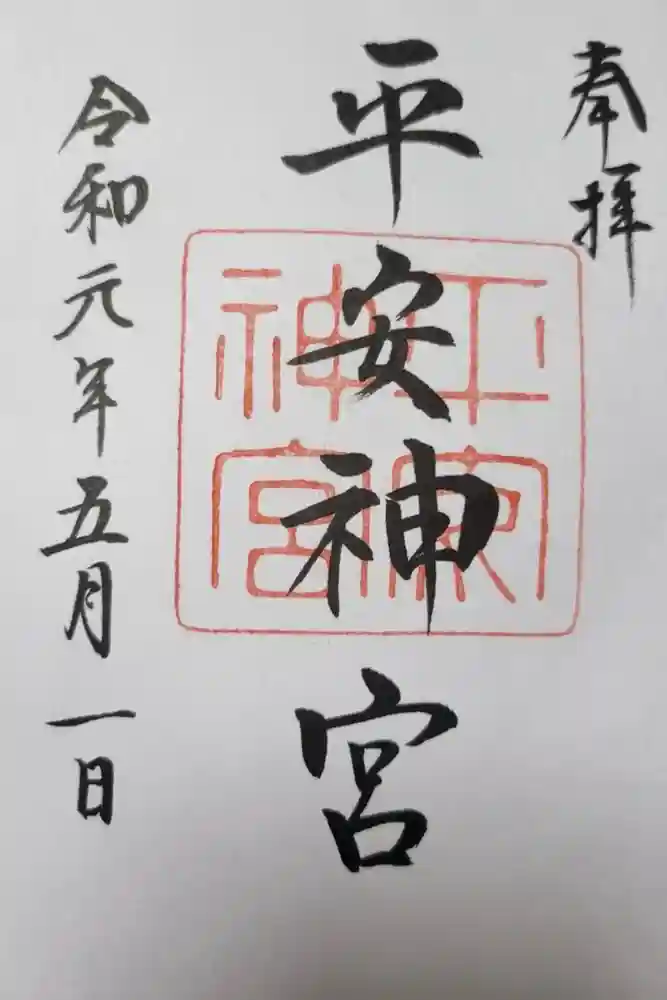 奉拝
平安神宮
令和元年五月一日
平安神宮